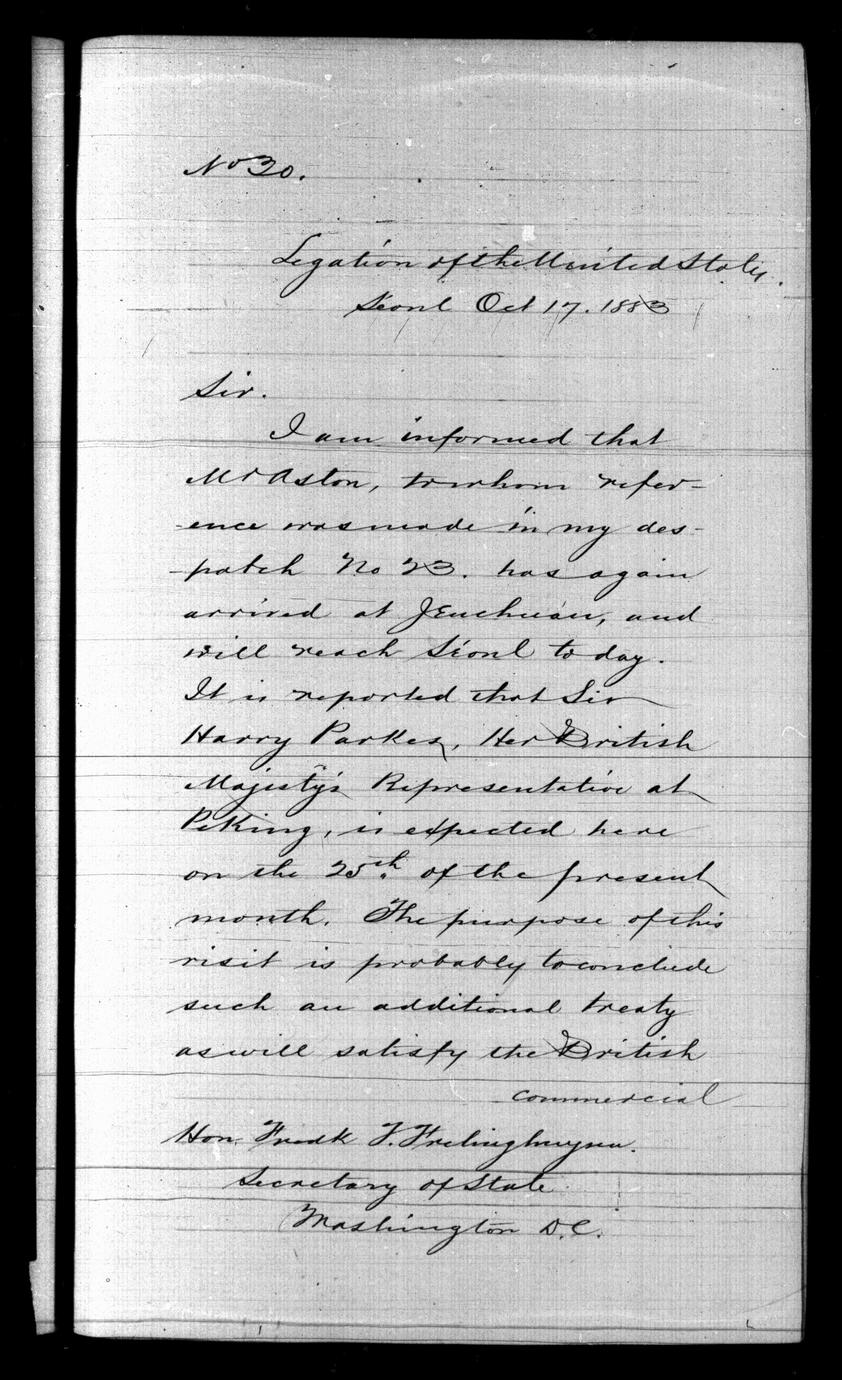 No 30.
Legation of the United States.
Séoul Oct 17. 1883
Sir.
I am informed that
Mr Aston, to whom refer-
ence was made in my des-
patch No 23. has again
arrived at Jenchuan, and
will reach Séoul today.
It is reported that Sir
Harry Parkes, Her British
Majesty's Representative at
Peking, is expected here
on the 25th. of the present
month. The purpose of this
visit is probably to conclude
such an additional treaty
as will satisfy the British
commercial
Hon. Fredk T. Frelinghuysen.
Secretary of State
Washington D.C.